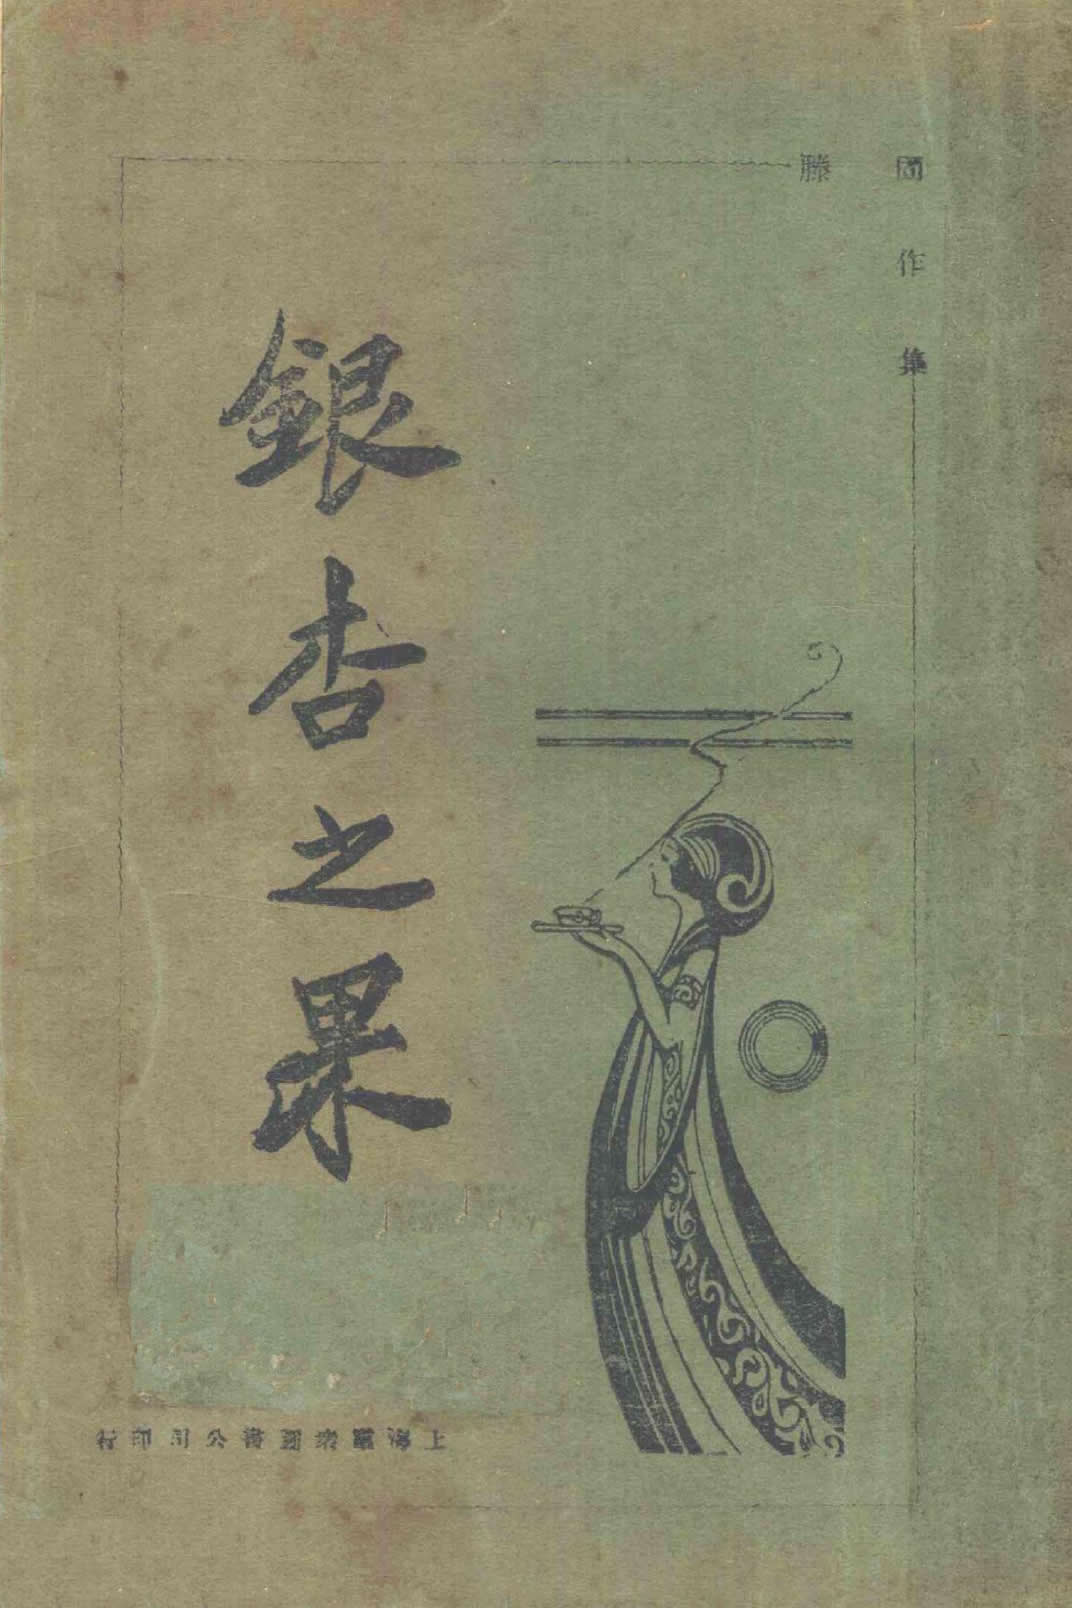 滕
固作集
銀杏之果
上海羣衆圖書公司印行